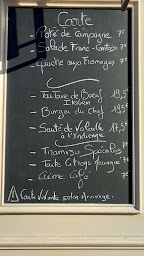 Carte
- Pâté de Campagne 7€
- Salade Franc-Comtoise 7€
- Quiche aux Fromages 7€
- Tartare de Boeuf 19,5€
Italien
- Burger du Chef 19,5€
- Sauté de Volaille 17,5€
à l'Indienne
- Tiramisu Spéculos 7€
- Tarte Citron Meringué 7€
- Crème Café
Carte Variante selon Arrivage.